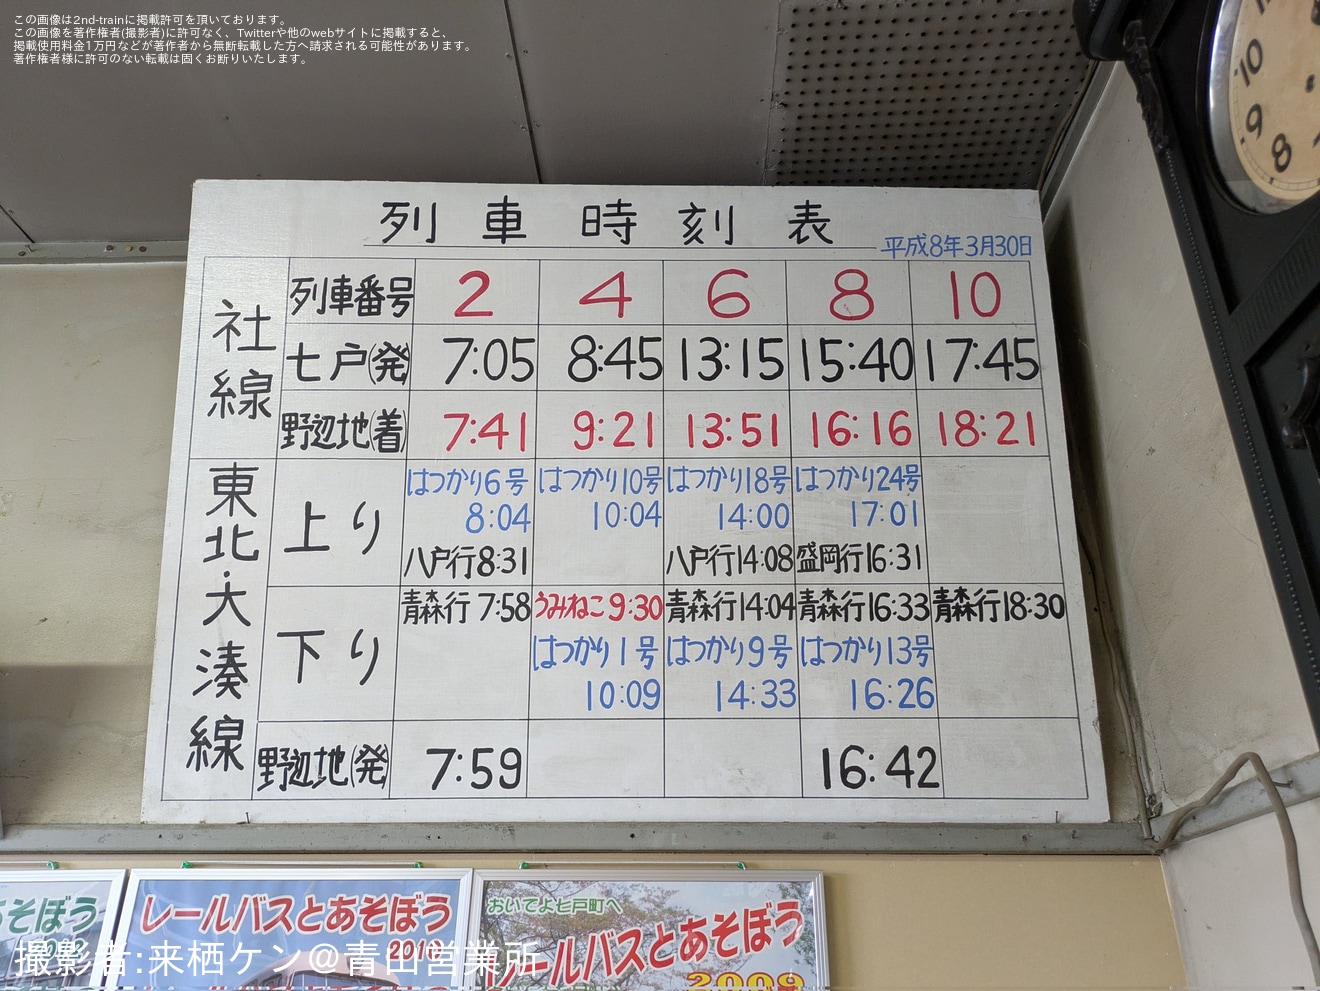 この画像は2nd-trainに掲載許可を頂いております。
この画像を著作権者(撮影者)に許可なく、Twitterや他のwebサイトに掲載すると、
掲載使用料金1万円などが著作者から無断転載した方へ請求される可能性があります。
著作権者様に許可のない転載は固くお断りいたします。
列車時刻表
平成8年3月30日
社線
列車番号 2 4 6 8 10
七戸(発) 7:05 8:45 13:15 15:40 17:45
野辺地(着) 7:41 9:21 13:51 16:16 18:21
東北・大湊線
上り
はつかり6号 はつかり10号 はつかり18号 はつかり24号
8:04 10:04 14:00 17:01
八戸行8:31 八戸行14:08 盛岡行16:31
下り
青森行 7:58 うみねこ 9:30 青森行14:04 青森行16:33 青森行18:30
はつかり1号 はつかり9号 はつかり13号
10:09 14:33 16:26
野辺地(発) 7:59 16:42
10
9
8
あそぼう
レールバスとあそぼう
おいでよ七戸町へ
レールバスとあそぼう
2009
撮影者:来栖ケン@青山営業所